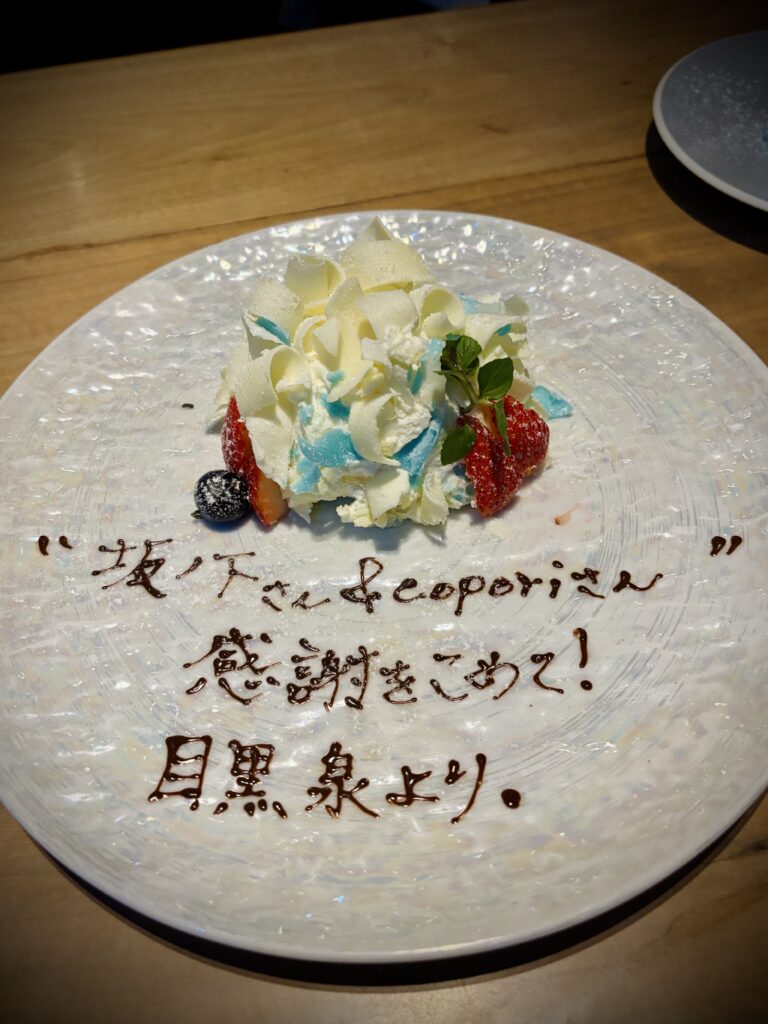 “坂ノ下さん&coporiさん”
感謝をこめて!
目黒 泉より.